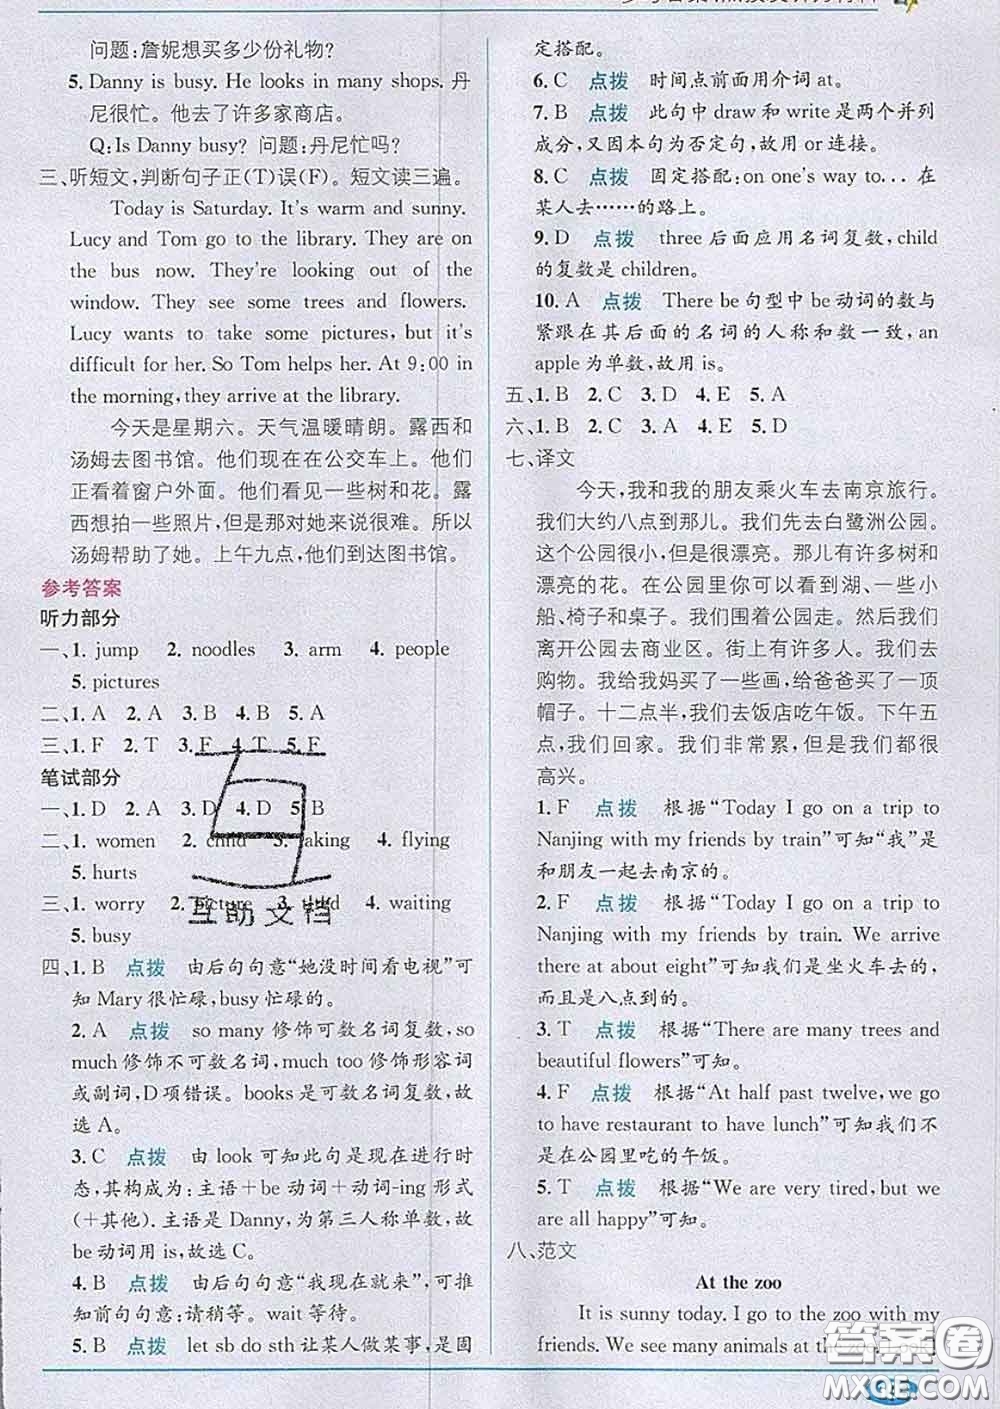 问题:詹妮想买多少份礼物?
5. Danny is busy. He looks in many shops. 丹
尼很忙。他去了许多家商店。
Q:Is Danny busy? 问题:丹尼忙吗?
三、听短文,判断句子正(T)误(F)。短文读三遍。
Today is Saturday. It's warm and sunny.
Lucy and Tom go to the library. They are on
the bus now. They're looking out of the
window. They see some trees and flowers.
Lucy wants to take some pictures, but it's
difficult for her. So Tom helps her. At 9:00 in
the morning, they arrive at the library.
今天是星期六。天气温暖晴朗。露西和
汤姆去图书馆。他们现在在公交车上。他们
正看着窗户外面。他们看见一些树和花。露
西想拍一些照片,但是那对她来说很难。所以
汤姆帮助了她。上午九点,他们到达图书馆。
参考答案
听力部分
一、1. jump 2. noodles 3. arm 4. people
5. pictures
二、1. A 2. A 3. B 4. B 5. A
三、1. F 2. T 3. F 4. T 5. F
笔试部分
一、1. D 2. A 3. D 4. D 5. B
二、1. women 2. child 3. taking 4. flying
5. hurts
三、1. worry 2. picture 3. third 4. waiting
5. busy
四、1. B 点拨 由后句句意“她没时间看电视”可
知 Mary 很忙碌,busy 忙碌的。
2. A 点拨 so many 修饰可数名词复数,so
much 修饰不可数名词,much too 修饰形容词
或副词,D 项错误。books 是可数名词复数,故
选 A。
3. C 点拨 由 look 可知此句是现在进行时
态,其构成为:主语+be 动词+动词-ing 形式
(+其他).主语是 Danny,为第三人称单数,故
be 动词用 is,故选 C。
4. B 点拨 由后句句意“我现在就来”,可推
知前句句意:请稍等。wait 等待。
5. B 点拨 let sb do sth 让某人做某事,是固
定搭配。
6. C 点拨 时间点前面用介词 at。
7. B 点拨 此句中 draw 和 write 是两个并列
成分,又因本句为否定句,故用 or 连接。
8. C 点拨 固定搭配:on one's way to... 在
某人去……的路上。
9. D 点拨 three 后面应用名词复数,child
的复数是 children。
10. A 点拨 There be 句型中 be 动词的数与
紧跟在其后面的名词的人称和数一致,an
apple 为单数,故用 is。
五、1. B 2. C 3. D 4. E 5. A
六、1. B 2. C 3. A 4. E 5. D
七、译文
今天,我和我的朋友乘火车去南京旅行。
我们大约八点到那儿。我们先去白鹭洲公园。
这个公园很小,但是很漂亮。那儿有许多树和
漂亮的花。在公园里你可以看到湖、一些小
船、椅子和桌子。我们围着公园走。然后我们
离开公园去商业区。街上有许多人。我们去
购物。我给我妈买了一些画,给爸爸买了一顶
帽子。十二点半,我们去饭店吃午饭。下午五
点,我们回家。我们非常累,但是我们都很
高兴。
1. F 点拨 根据“Today I go on a trip to
Nanjing with my friends by train”可知“我”是
和朋友一起去南京的。
2. F 点拨 根据“Today I go on a trip to
Nanjing with my friends by train. We arrive
there at about eight”可知我们是坐火车去的,
而且是八点到的。
3. T 点拨 根据“There are many trees and
beautiful flowers”可知。
4. F 点拨 根据“At half past twelve, we go
to have restaurant to have lunch”可知我们不
是在公园里吃的午饭。
5. T 点拨 根据“We are very tired, but we
are all happy”可知。
八、范文
At the zoo
It is sunny today. I go to the zoo with my
friends. We see many animals at the
互助文档
答案圈
MXQE.COM